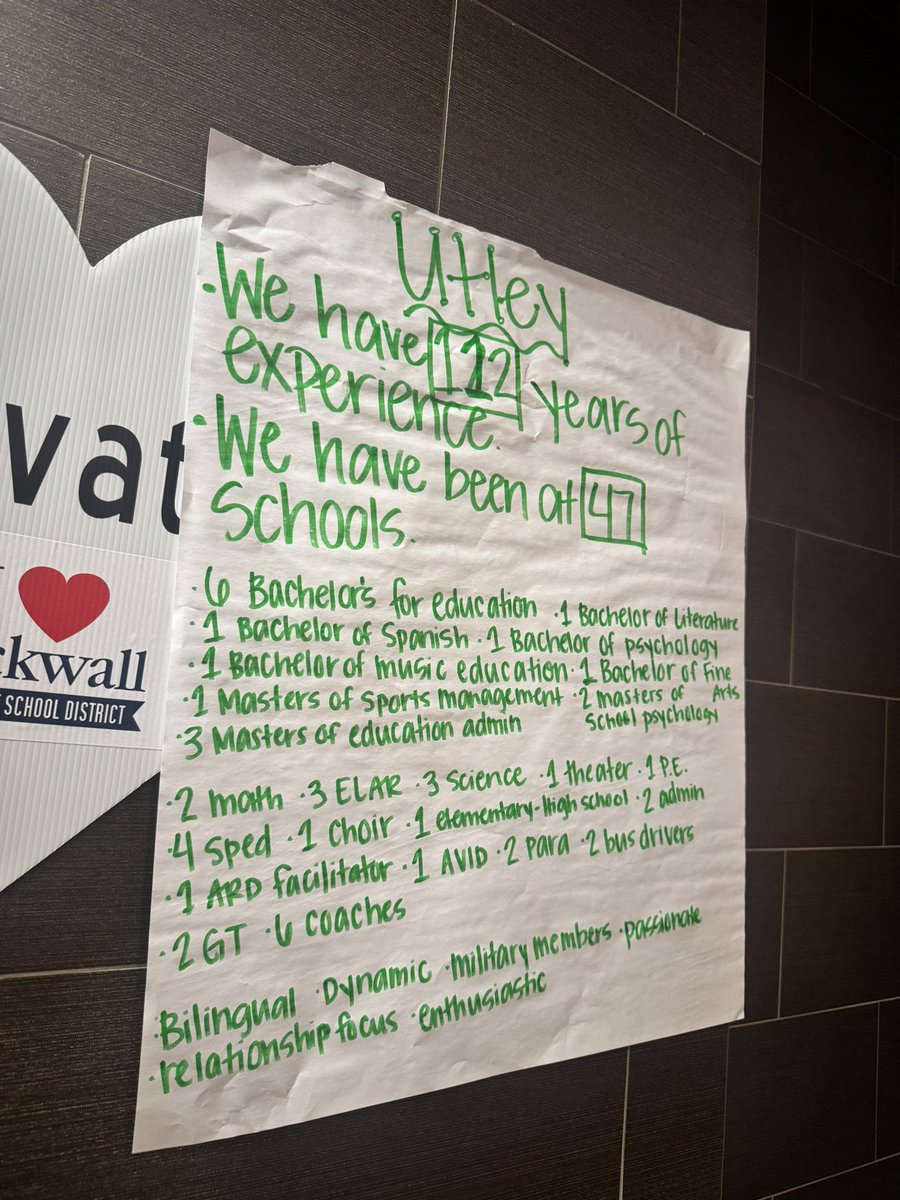 Utley
·We have 112 years of
experience.
·We have been at 47
Schools.
·6 Bachelor's for education ·1 Bachelor of Literature
·1 Bachelor of Spanish ·1 Bachelor of psychology
·1 Bachelor of music education ·1 Bachelor of Fine Arts
·1 Masters of sports management ·2 masters of school psychology
·3 Masters of education admin
·2 math ·3 ELAR ·3 science ·1 theater ·1 P.E.
·4 sped ·1 choir ·1 elementary-High school ·2 admin
·1 ARD facilitator ·1 AVID ·2 para ·2 bus drivers
·2 GT ·6 coaches
·Bilingual ·Dynamic ·military members ·passionate
·relationship focus ·enthusiastic
vat
ckwall
SCHOOL DISTRICT